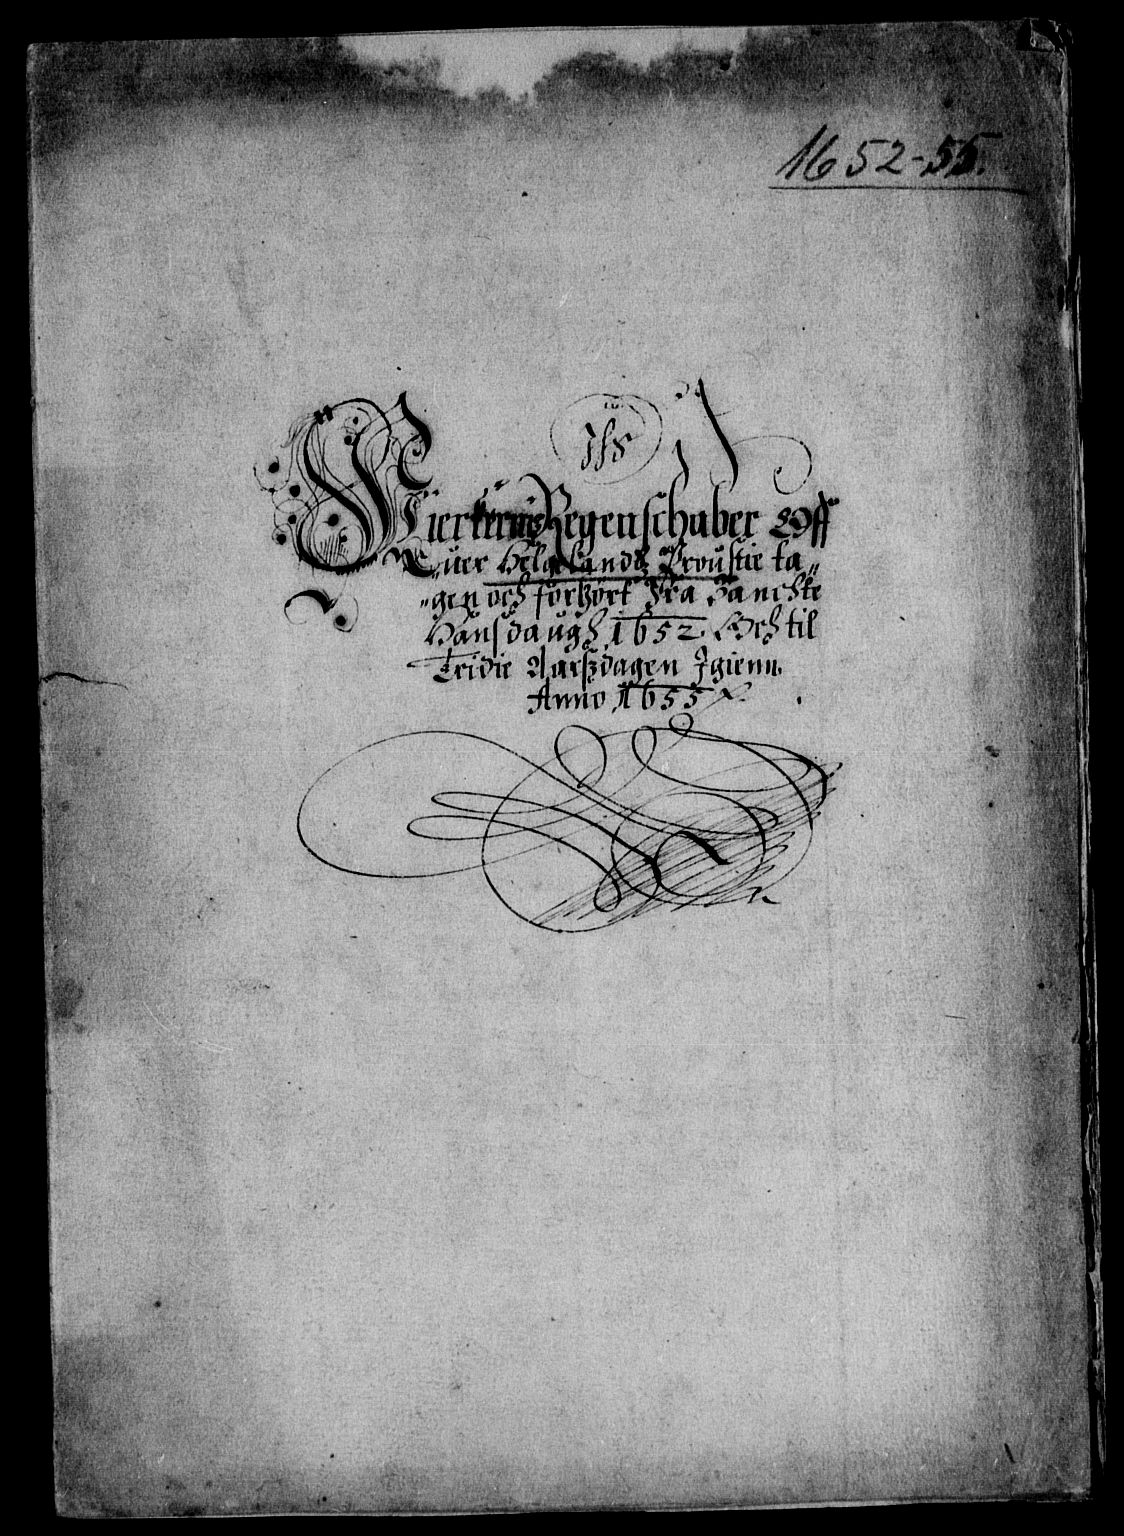 1652-55.
Jhs
Kierkernis Regenschaber Off
„uer Helgelandz Proustie ta„
„gen och forhört Fra Sanckte
Hansdaugh 1652. Och til
Tridie Aarszdagen Igienn.
Anno 1655